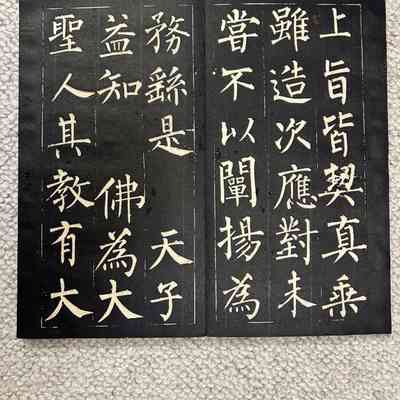 上旨皆契真乘
雖造次應對未
嘗不以闡揚為
務繇是 天子
益知 佛為大
聖人其教有大